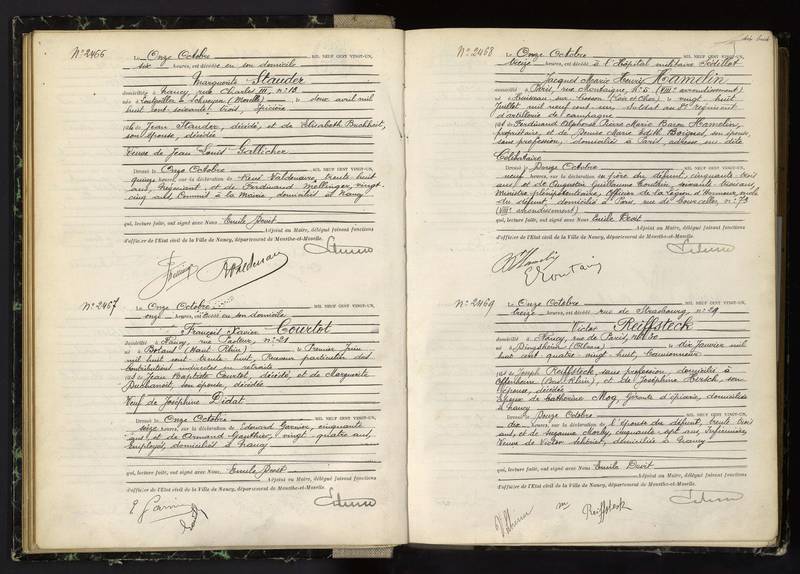 N° 2466
Le Onze Octobre MIL NEUF CENT VINGT-UN,
six heures, est décédée en son domicile
Marguerite Stauder
domiciliée à Nancy, rue Charles III, n° 13
née à (Moselle), le douze avril mil
huit cent soixante trois, épicière
fille de Jean Stauder, décédé, et de Elisabeth
son épouse, décédée
Veuve de Jean Louis Gallicher
Dressé le Onze Octobre MIL NEUF CENT VINGT-UN,
quinze heures, sur la déclaration de René Valdenaire, trente huit
ans, et de Ferdinand Mellinger, vingt
cinq ans, Commis à la Mairie, domiciliés à Nancy
qui, lecture faite, ont signé avec Nous Emile Devit
Adjoint au Maire, délégué faisant fonctions
d'officier de l'Etat civil de la Ville de Nancy, département de Meurthe-et-Moselle.
N° 2467
Le Onze Octobre MIL NEUF CENT VINGT-UN,
onze heures, est décédé en son domicile
François Xavier Courtot
domicilié à Nancy, rue Pasteur, n° 21
né à (Haut Rhin) le Premier Juin
mil huit cent trente huit, Receveur particulier des
Contributions indirectes en retraite
fils de Jean Baptiste Courtot, décédé, et de Marguerite
son épouse, décédée
Veuf de Joséphine Didat
Dressé le Onze Octobre MIL NEUF CENT VINGT-UN,
seize heures, sur la déclaration de Edouard Garnier, cinquante
ans et de Armand Gauthier, vingt quatre ans,
Employés, domiciliés à Nancy
qui, lecture faite, ont signé avec Nous Emile Devit
Adjoint au Maire, délégué faisant fonctions
d'officier de l'Etat civil de la Ville de Nancy, département de Meurthe-et-Moselle.
N° 2468
Le Onze Octobre MIL NEUF CENT VINGT-UN,
treize heures, est décédé à l'Hôpital militaire Sédillot
Jacques Marie Hamelin
domicilié à Paris, rue Montaigne, n° 5 (VIIIe arrondissement)
né à (Loir et Cher) le vingt huit
Juillet mil neuf cent un, Soldat au Régiment
d'artillerie de campagne
fils de Ferdinand Alphonse Pierre Marie Baron Hamelin,
propriétaire, et de Denise Marie Edith Boigues, son épouse,
sans profession, domiciliés à Paris, adresse su dite
Célibataire
Dressé le Douze Octobre MIL NEUF CENT VINGT-UN,
neuf heures, sur la déclaration du père du défunt, cinquante trois
ans et de Augustin Guillaume soixante trois ans,
Ministre plénipotentiaire, officier de la Légion d'Honneur, oncle
du défunt, domicilié à Paris, rue de Courcelles, n° 73
(VIIIe arrondissement)
qui, lecture faite, ont signé avec Nous Emile Devit
Adjoint au Maire, délégué faisant fonctions
d'officier de l'Etat civil de la Ville de Nancy, département de Meurthe-et-Moselle.
N° 2469
Le Onze Octobre MIL NEUF CENT VINGT-UN,
treize heures, est décédé rue de Strasbourg, n° 29
Victor Reiffsteck
domicilié à Nancy, rue de Paris, 30
né à Dingsheim (Alsace) le dix Janvier mil
huit cent quatre vingt huit, Camionneur
fils de Joseph Reiffsteck, sans profession, domicilié à
Offenheim (Bas Rhin), et de Joséphine son
épouse, décédée
Epoux de Catherine Mog, Gérante d'épicerie, domiciliée
à Nancy
Dressé le Douze Octobre MIL NEUF CENT VINGT-UN,
dix heures, sur la déclaration de l'épouse du défunt, trente trois
ans, et de Suzanne cinquante sept ans, Infirmière,
Veuve de Victor domiciliée à Nancy
qui, lecture faite, ont signé avec Nous Emile Devit
Adjoint au Maire, délégué faisant fonctions
d'officier de l'Etat civil de la Ville de Nancy, département de Meurthe-et-Moselle.
Reiffsteck